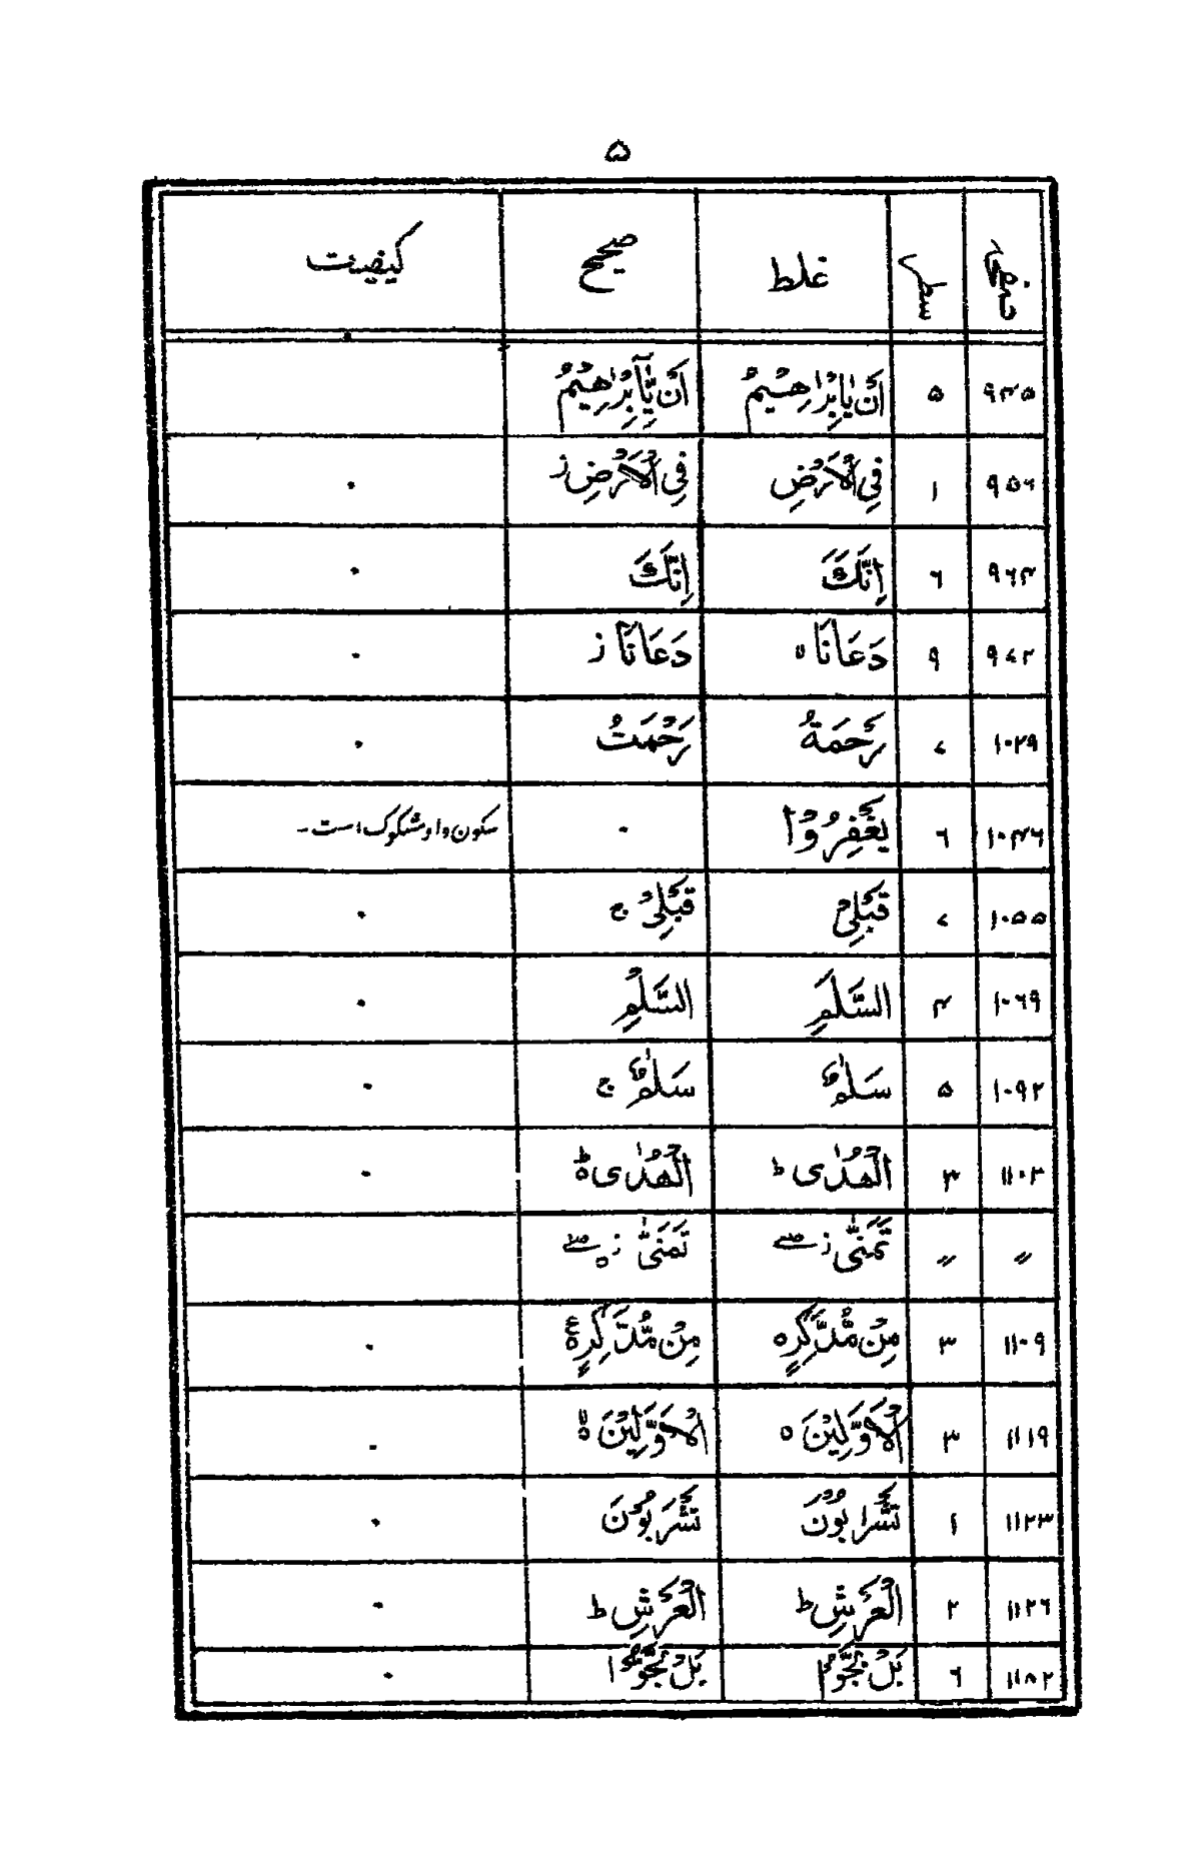 ۵
صفحہ سطر غلط صحیح کیفیت
۹۴۵ ۵ اَنْ یٰاِبْرٰاهِیْمُ اَنْ یّٰۤاِبْرٰهِیْمُ
۹۵۶ ۱ فِی الْاَرْضِ فِی الْاَرْضِ ز ۰
۹۶۴ ۶ اِنَّكَ اِنَّكَ ۰
۹۷۲ ۹ دَعَانَا دَعَانَا ز ۰
۱۰۲۹ ۷ رَحْمَةُ رَحْمَتُ ۰
۱۰۴۶ ۶ یَغْفِرُوْا ۰ سکون واو مشکوک است۔
۱۰۵۵ ۷ قَبْلِیْ قَبْلِیْ ج ۰
۱۰۶۹ ۴ السَّلَمِ السَّلْمِ ۰
۱۰۹۲ ۵ سَلٰمٌ سَلٰمٌ ج ۰
۱۱۰۲ ۳ الْهُدٰى ط الْهُدٰى ۰
〃 〃 تَمَنّٰى ز تَمَنّٰى ز
۱۱۰۹ ۳ مِنْ مُّدَّكِرٍ ه مِنْ مُّدَّكِرٍ ۰
۱۱۱۹ ۳ الْاَوَّلِیْنَ ه الْاَوَّلِیْنَ ۰
۱۱۲۳ ۱ تَشْرَابُوْنَ تَشْرَبُوْنَ ۰
۱۱۲۶ ۲ الْعَرْشِ ط الْعَرْشِ ط ۰
۱۱۸۲ ۶ بَلْ لَجُّوْ بَلْ لَّجُّوْا ۰